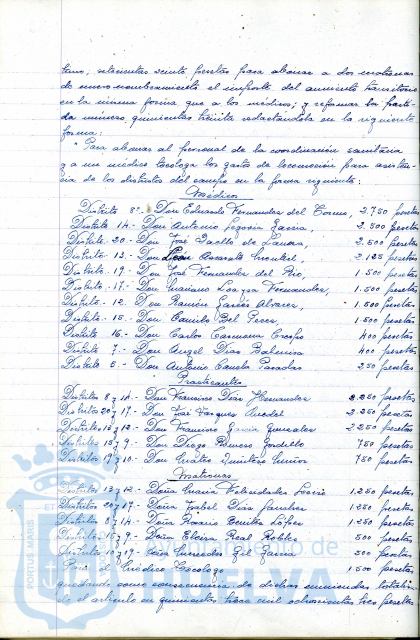 timo, setecientas veinte pesetas para abonar a dos matronas
de nuevo nombramiento el importe del aumento transitorio
en la misma forma que a los médicos; y reformar la parti-
da número quinientas treinta redactándola en la siguiente
forma:
" Para abonar al personal de la coordinación sanitaria
y a un médico tocólogo los gastos de locomoción para asisten-
cia de los distritos del campo en la forma siguiente:
Médicos
Distrito 8º- Don Eduardo Fernandez del Torno, 3.750 pesetas
Distrito 14.- Don Antonio Segovia García, 2.500 pesetas
Distrito 20.- Don José de Lamara, 2.500 pesetas
Distrito 13.- Don 2.125 pesetas
Distrito 19.- Don José Fernandez del Pino, 1.500 pesetas
Distrito 17.- Don Mariano Fernandez, 1.500 pesetas
Distrito 12.- Don Ramón García Alvarez, 1.500 pesetas
Distrito 15.- Don Camilo Bel Perez, 1.500 pesetas
Distrito 16.- Don Carlos Carmona Crespo 400 pesetas
Distrito 7.- Don Angel Dias 400 pesetas
Distrito 5.- Don Antonio Canela 250 pesetas
Practicantes
Distritos 8 y 14.- Don Francisco Dias Hernandez 2.250 pesetas
Distritos 20 y 17.- Don José Vazquez 2.250 pesetas
Distritos 13 y 12.- Don Francisco García Gonzalez 2.250 pesetas
Distritos 15 y 9.- Don Diego Romero Gordillo 750 pesetas
Distritos 19 y 10.- Don Matés Quintero Muñoz 750 pesetas
Matronas
Distritos 13 y 12.- Doña María 1.250 pesetas
Distritos 20 y 17.- Doña Isabel Dias Sanchez 1.250 pesetas
Distritos 8 y 14.- Doña Rosario Benitez López 1.250 pesetas
Distritos 15 y 9.- Doña Elvira Real Robles 500 pesetas
Distritos 10 y 19.- Doña Mercedes Gil García 500 pesetas
Para el Médico Tocologo 1.500 pesetas
quedando como consecuencia de dichas enmiendas totaliza-
do el artículo en quinientas trece mil ochocientas tres pesetas
PORTUS MARIS
ET
Ayuntamiento de
HUELVA